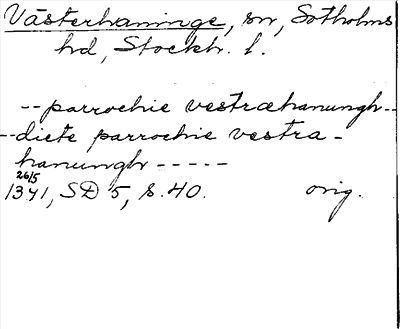 Västerhaninge, sn, Sotholms
hd, Stockh. l.
-- parrochie vestræhanungh --
-- dicte parrochie vestra-
hanungh -----
26/5
1341, SD 5, s. 40. orig.